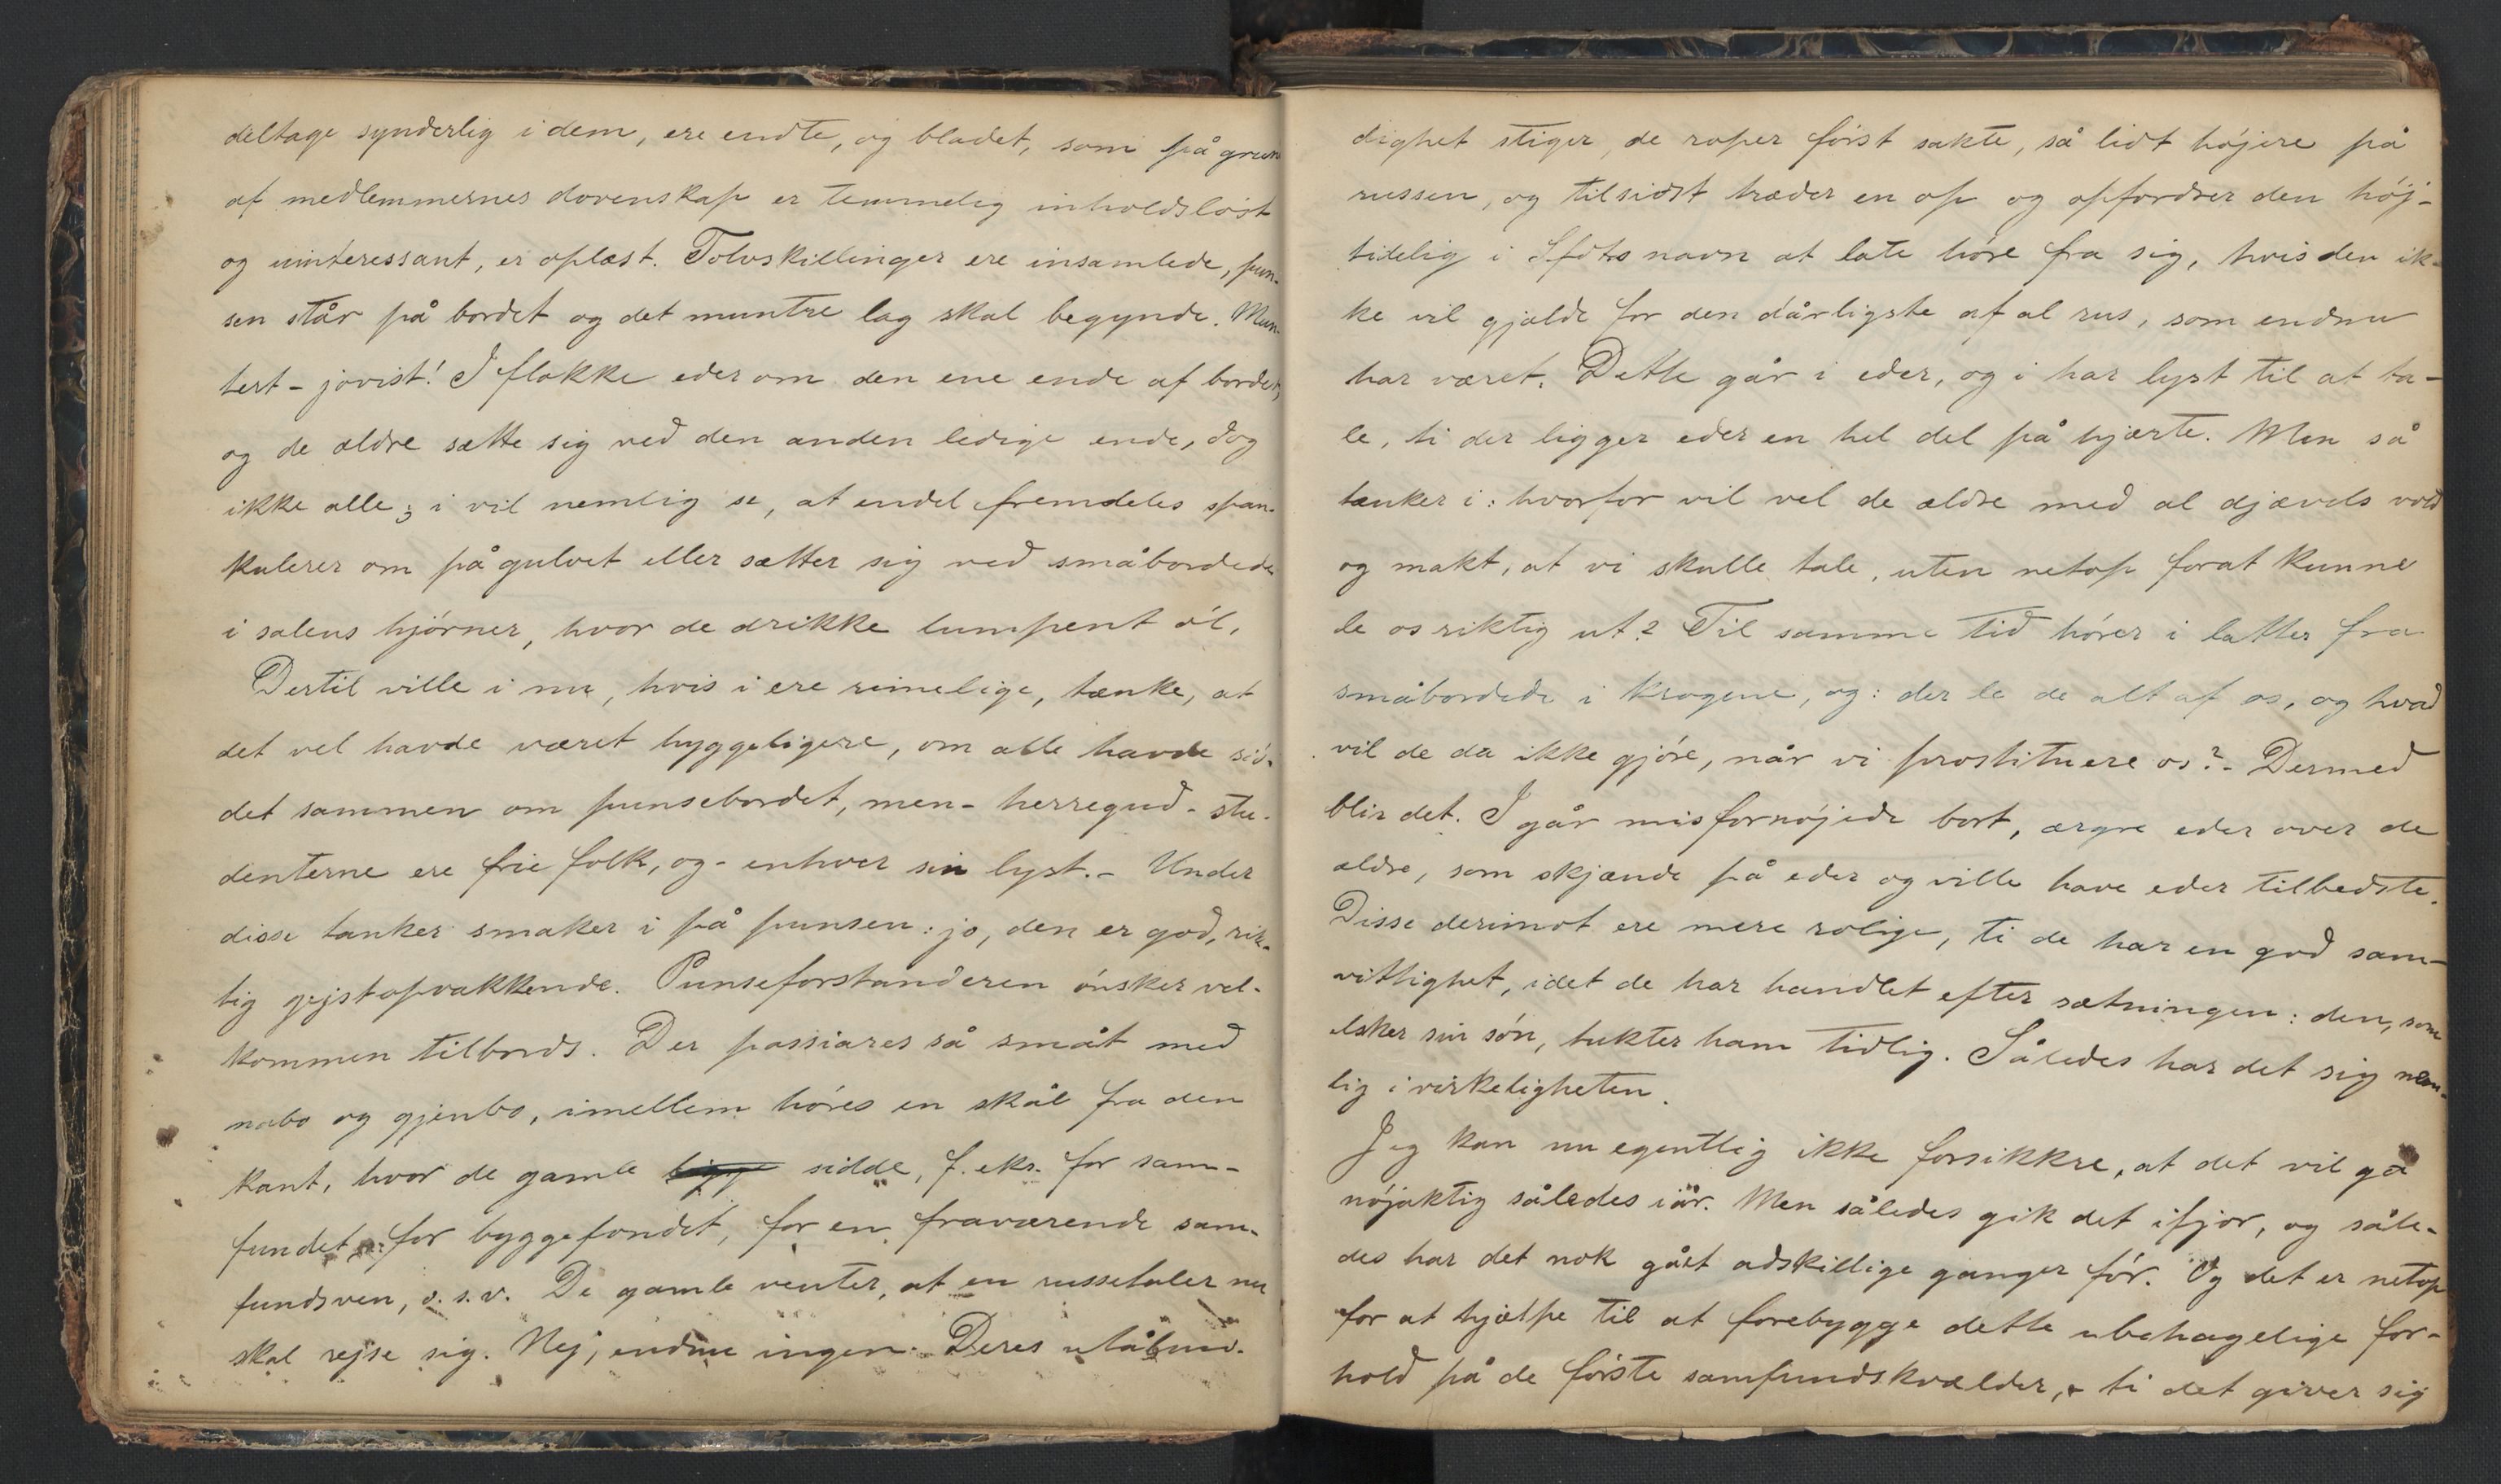 deltage synderlig i dem, ere endte, og bladet, som på grun
af medlemmernes dovenskap er temmelig inholdsløst
og uinteressant, er oplæst. Tolvskillinger ere insamlede, pun-
sen står på bordet og det muntre lag skal begynde. Mun-
tert - jovist! I flokke eder om den ene ende af bordet,
og de ældre sætte sig ved den anden ledige ende, dog
ikke alle; i vil nemlig se, at endel fremdeles span-
kulerer om på gulvet eller sætter sig ved småbordede
i salens hjørner, hvor de drikke lumpent øl.
Dertil ville i nu, hvis i ere rimelige, tænke, at
det vel havde været hyggeligere, om alle havde sid-
det sammen om punsebordet, men - herregud - stu-
denterne ere frie folk, og - enhver sin lyst. - Under
disse tanker smaker i på punsen: jo, den er god, rik-
tig gejstopvækkende. Punseforstanderen ønsker vel-
kommen tilbords. Der passiares så småt med
nabo og gjenbo, imellem høres en skål fra den
kant, hvor de gamle ligge sidde, f. eks. for sam-
fundet, for byggefondet, for en fraværende sam-
fundsven, o. s. v. De gamle venter, at en russetaler nu
skal rejse sig. Nej, endnu ingen. Deres utålmo-
dighet stiger, de roper først sakte, så lidt højere på
russen, og tilsidst træder en op og opfordrer den høj-
tidelig i Sfdts navn at late høre fra sig, hvis den ik-
ke vil gjælde for den dårligste af al rus, som endnu
har været. Dette går i eder, og i har lyst til at ta-
le, ti der ligger eder en hel del på hjærte. Men så
tænker i: hvorfor vil vel de ældre med al djævels vold
og makt, at vi skulle tale, uten netop forat kunne
le os riktig ut? Til samme tid hører i latter fra
småbordede i krogene, og: der le de alt af os, og hvad
vil de da ikke gjøre, når vi prostituere os? - Dermed
blir det. I går misfornøjede bort, ærgre eder over de
ældre, som skjænde på eder og ville have eder tilbedste.
Disse derimot ere mere rolige, ti de har en god sam-
vittighet, idet de har handlet efter sætningen: den, som
elsker sin søn, tukter ham tidlig. Således har det sig nem-
lig i virkeligheten.
Jeg kan nu egentlig ikke forsikkre, at det vil gå
nøjaktig således iår. Men således gik det ifjor, og såle-
des har det nok gået adskillige ganger før. Og det er netop
for at hjælpe til at forebygge dette ubehagelige for-
hold på de første samfundskvælder, - ti det giver sig